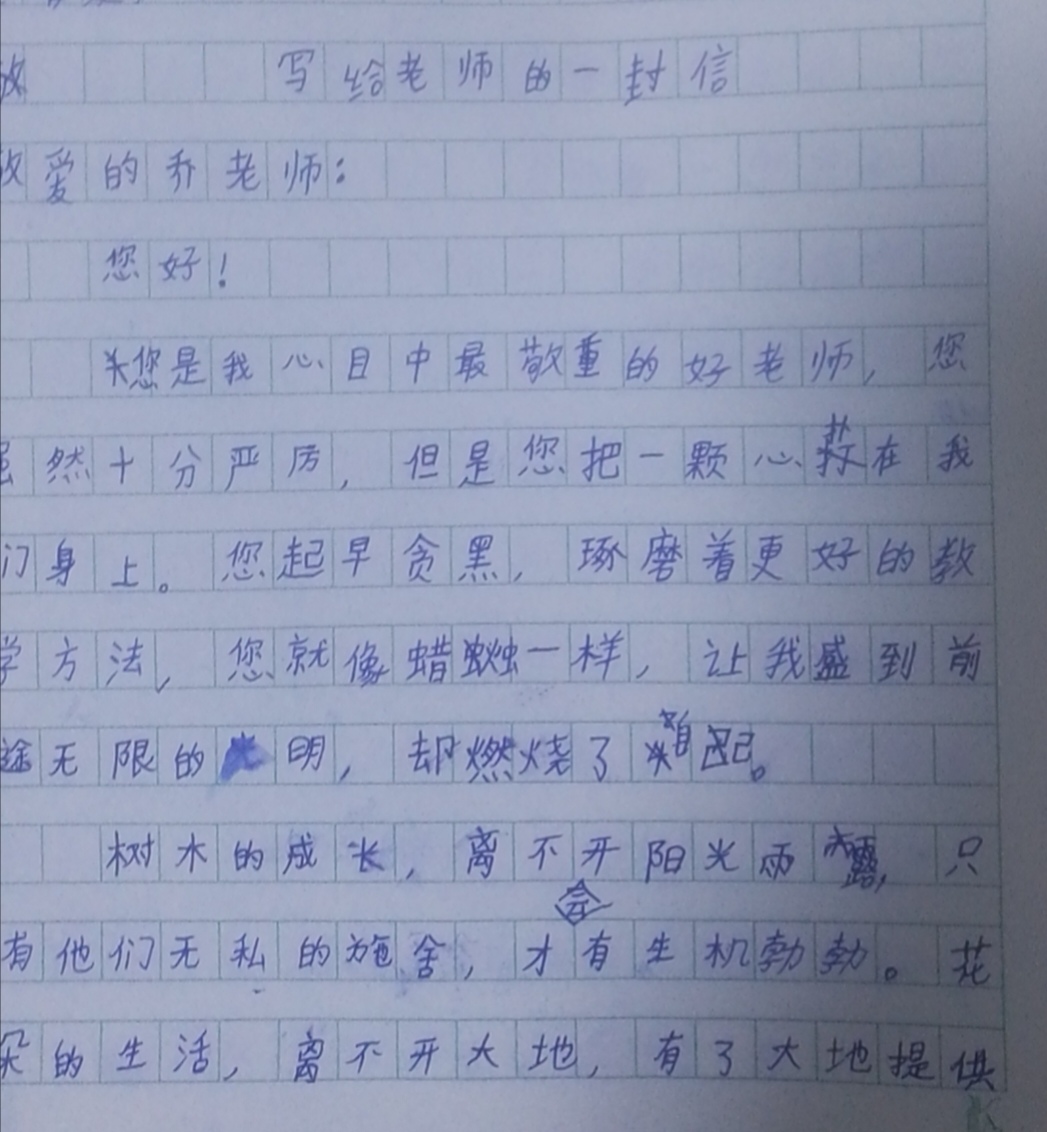 写给老师的一封信
敬爱的乔老师：
您好！
您是我心目中最敬重的好老师，您
虽然十分严厉，但是您把一颗心放在我
们身上。您起早贪黑，琢磨着更好的教
学方法，您就像蜡烛一样，让我感到前
途无限的光明，却燃烧了自己。
树木的成长，离不开阳光雨露，只
有他们无私的施舍，才会有生机勃勃。花
朵的生活，离不开大地，有了大地提供